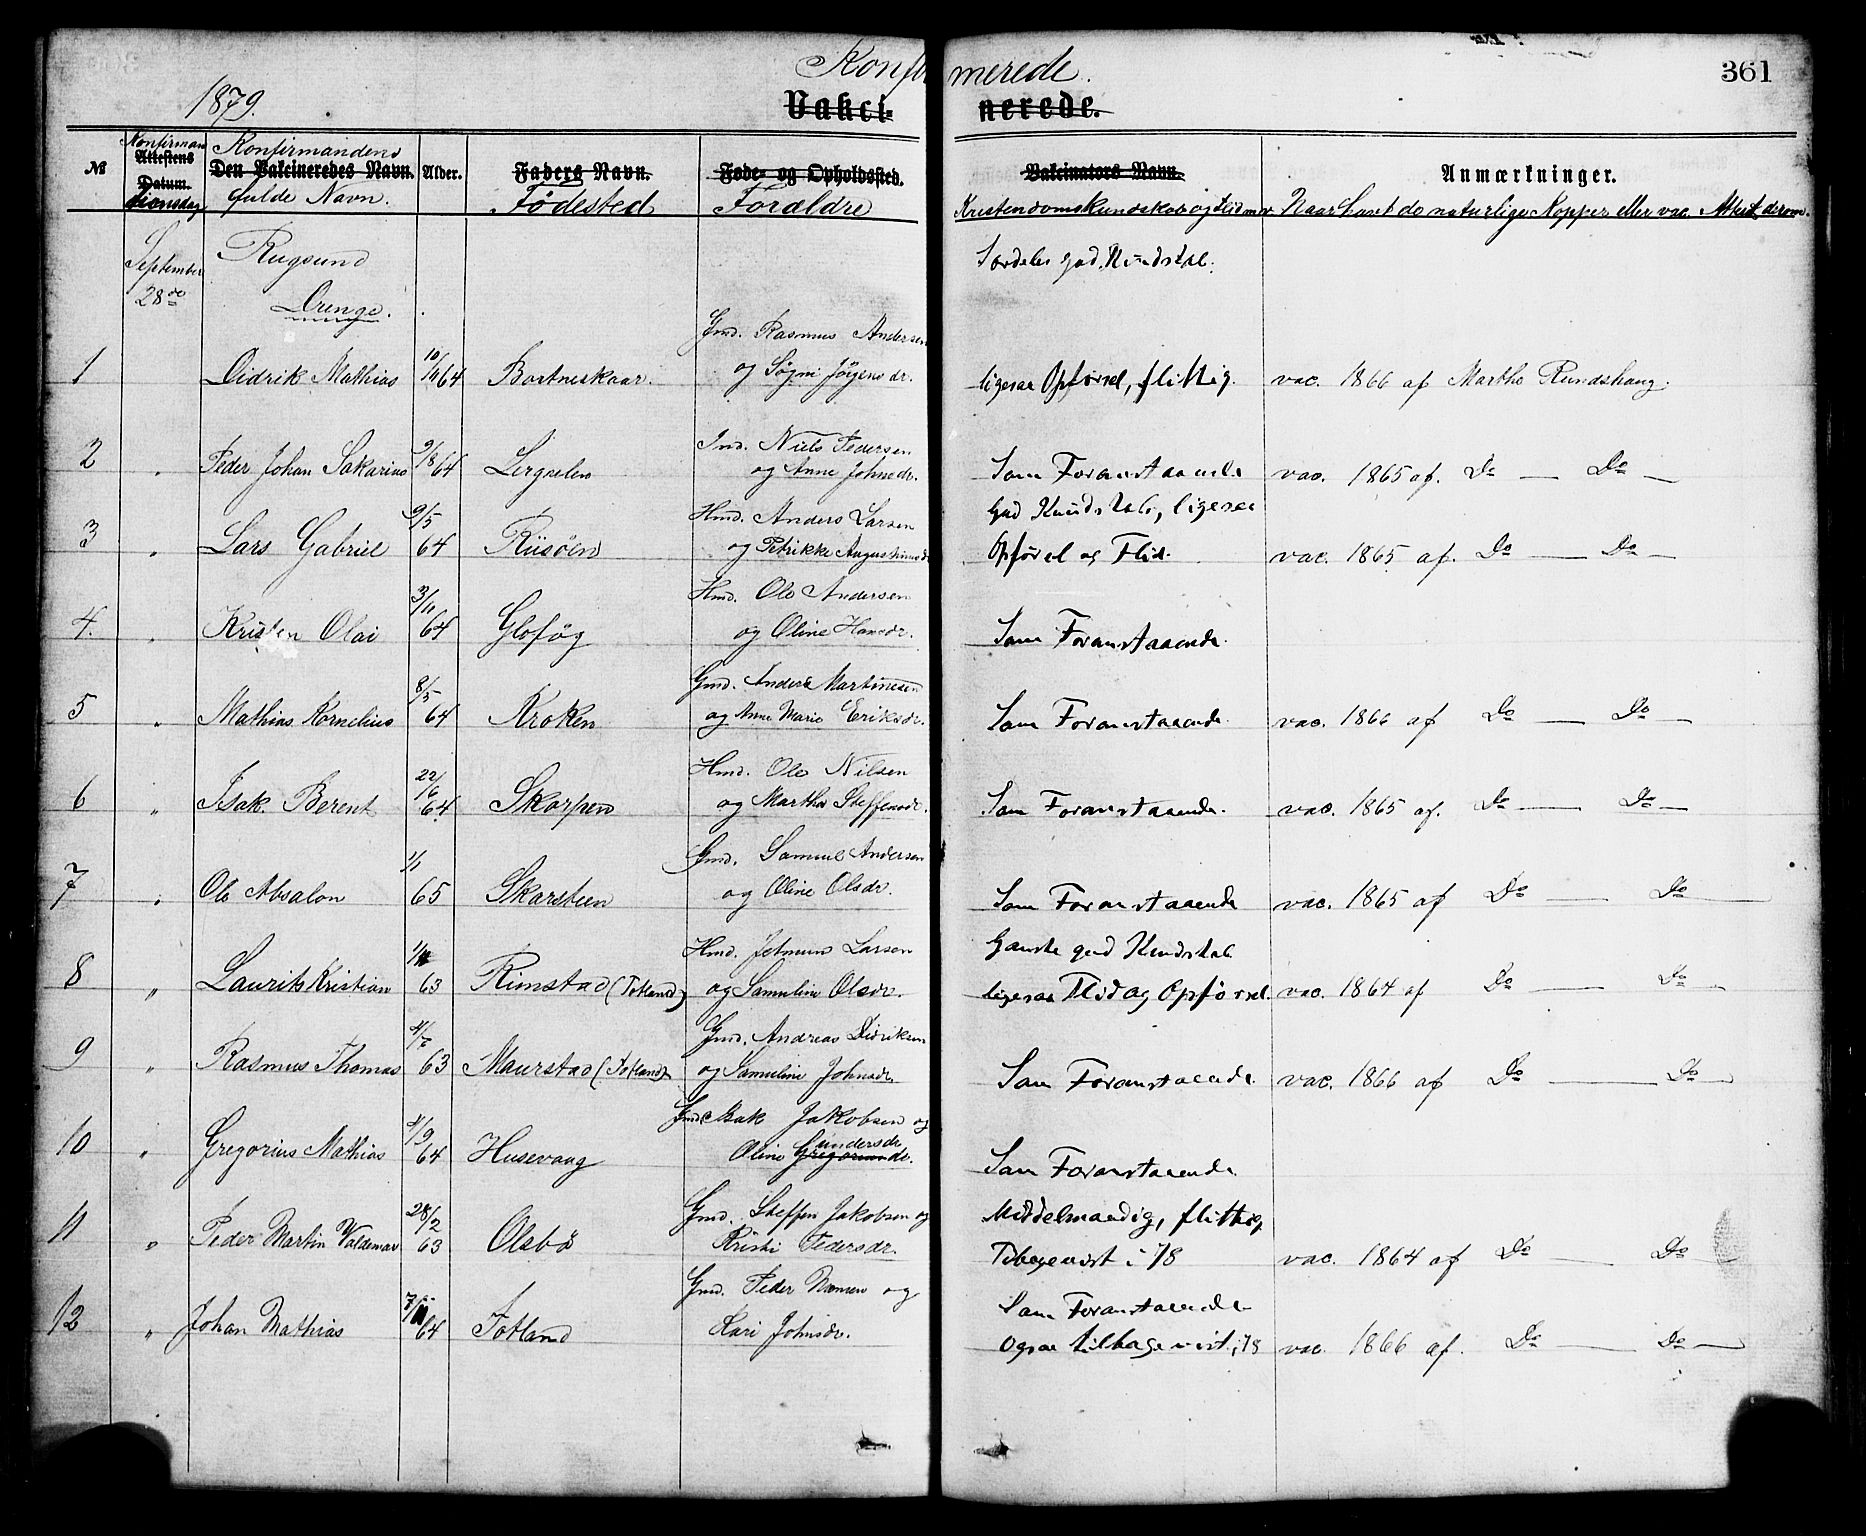 Konfirmerede.
361
1879.
Vakcinerede.
№
Konfirmationsdag
Attestens Datum.
Konfirmandens
Den Vakcineredes Navn.
fulde Navn.
Alder.
Faders Navn.
Fødested
Føde- og Opholdssted.
Forældre
Vakcinators Navn.
Kristendomskundskab og
Anmærkninger.
Naar havt de naturlige Kopper eller vac. Attest derom.
September 28de
Rugsund
Drenge.
Særdeles god Kundskab,
Gmd. Rasmus Andersen
1 Didrik Mathias 10/11 64 Bortneskaar. og Søgni Jørgensdr. ligesaa Opførsel, flittig. vac. 1866 af Marthe Rundshaug.
Ind. Niels Pedersen
2 " Peder Johan Sakarias 9/8 64 Lergulen og Anne Johnsdr. Som Foranstaaende vac. 1865 af. Do — Do —
Hmd. Anders Larsen God Kundskab, ligesaa
3 " Lars Gabriel 9/5 64 Riisöen og Petrikke Augustinusdr Opførsel og Flid. vac. 1865 af. Do — Do —
Hmd. Ole Andersen
4. " Kristen Olai 3/11 64 Gloføg og Oline Hansdr. Som Foranstaaende
Gmd. Anders Martinesen
5 " Mathias Kornelius 8/5 64 Kroken og Anne Marie Eriksdr. Som Foranstaaende vac. 1866 af Do — Do —
Hmd. Ole Nilsen
6 " Isak Berent 22/6 64 Skorpen og Marthe Steffensdr. Som Foranstaaende. vac. 1865 af. Do — Do —
Gmd. Samuel Andersen
7 " Ole Absalon 1/1 65 Skarsteen og Oline Olsdr. Som Foranstaaende vac. 1865 af Do — Do —
Hmd. Jetmun Larsen Ganske god Kundskab
8 " Laurits Kristian 63 Rimstad (Totland) og Samuline Olsdr. ligesaa Flid og Opførsel. vac. 1864 af Do — Do —
Gmd. Andreas Didriksen
9 " Rasmus Thomas 63 Maurstad (Totland) og Samuline Johnsdr. Som Foranstaaende vac. 1866 af Do — Do —
Gmd. Isak Jakobsen og
10 " Gregorius Mathias 4/9 64 Husevaag Oline Gundersdr Gregoriusdr. Som Foranstaaende
Gmd. Steffen Jakobsen og Middelmaadig, flittig,
11 " Peder Martin Valdemar 28/2 63 Olsbö Kristi Pedersdr. Tilbagevist i 78 vac. 1864 af Do — Do —
Gmd. Peder Monsen og Som Foranstaaende
12 " Johan Mathias 64 Totland Kari Johnsdr. Ogsaa tilbagevist i 78 vac. 1866 af. Do — Do —